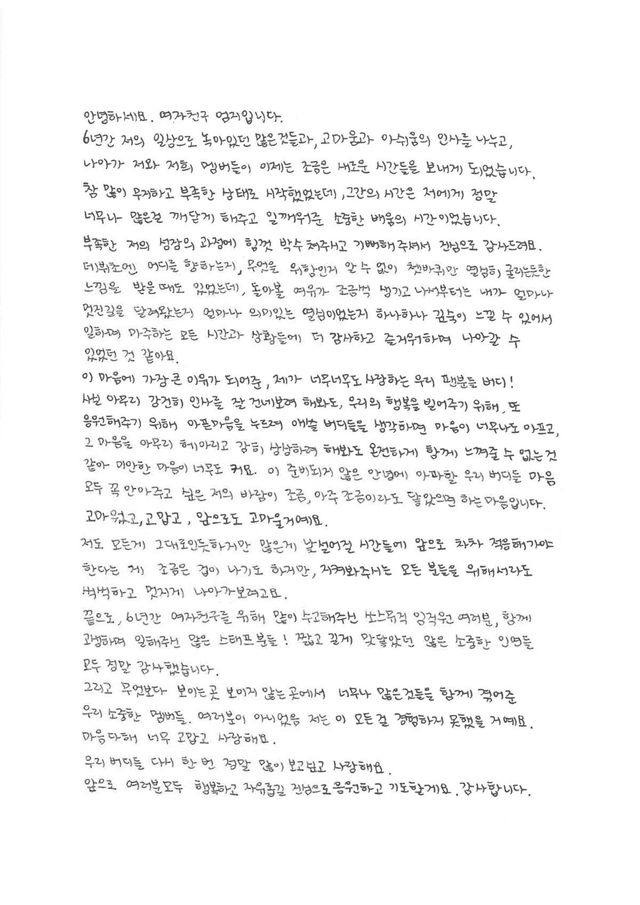 안녕하세요. 여자친구 엄지입니다.
6년간 저의 일상으로 녹아있던 많은것들과, 고마움과 아쉬움의 인사를 나누고,
나아가 저와 저희 멤버들이 이제는 조금은 새로운 시간들을 보내게 되었습니다.
참 많이 무지하고 부족한 상태로 시작했었는데, 그간의 시간은 저에게 정말
너무나 많은걸 깨닫게 해주고 일깨워준 소중한 배움의 시간이었습니다.
부족한 저의 성장의 과정에 힘껏 박수쳐주시고 기뻐해주셔서 진심으로 감사드려요.
데뷔초엔 어디를 향하는지, 무엇을 위함인지 알 수 없이 쳇바퀴만 열심히 굴리는듯한
느낌을 받을때도 있었는데, 돌아볼 여유가 조금씩 생기고 나서부터는 내가 얼마나
멋진길을 달려왔는지 얼마나 의미있는 열심이었는지 하나하나 깊숙이 느낄 수 있어서
일하며 마주하는 모든 시간과 상황들에 더 감사하고 즐거워하며 나아갈 수
있었던 것 같아요.
이 마음에 가장 큰 이유가 되어준, 제가 너무너무도 사랑하는 우리 팬분들 버디!
사실 아무리 감히 인사를 잘 건네보려 해봐도, 우리의 행복을 빌어주기 위해, 또
응원해주기 위해 아픈마음을 누르며 애쓸 버디들을 생각하면 마음이 너무나도 아프고,
그 마음을 아무리 헤아리고 감히 상상하려 해봐도 온전하게 함께 느껴줄 수 없는것
같아 미안한 마음이 너무도 커요. 이 준비되지 않은 안녕에 아파할 우리 버디들 마음
모두 꼭 안아주고 싶은 저의 바람이 조금, 아주 조금이라도 닿았으면 하는 마음입니다.
고마웠고, 고맙고, 앞으로도 고마울거예요.
저도 모든게 그대로인듯하지만 많은게 낯설어질 시간들에 앞으로 차차 적응해가야
한다는 게 조금은 겁이 나기도 하지만, 지켜봐주시는 모든 분들을 위해서라도
씩씩하고 멋지게 나아가보려고요.
끝으로, 6년간 여자친구를 위해 많이 수고해주신 쏘스뮤직 임직원 여러분, 함께
고생하며 일해주신 많은 스태프분들! 짧고 길게 맞닿았던 많은 소중한 인연들
모두 정말 감사했습니다.
그리고 무엇보다 보이는곳 보이지 않는곳에서 너무나 많은것들을 함께 겪어준
우리 소중한 멤버들. 여러분이 아니었음 저는 이 모든걸 경험하지 못했을 거예요.
마음다해 너무 고맙고 사랑해요.
우리 버디들 다시 한 번 정말 많이 보고싶고 사랑해요.
앞으로 여러분모두 행복하고 자유롭길 진심으로 응원하고 기도할게요. 감사합니다.